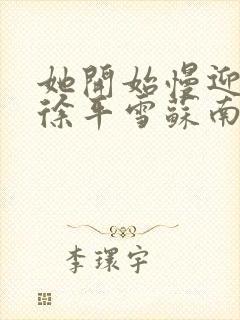 她開始慢迎
徐平雪蘇南
李環宇